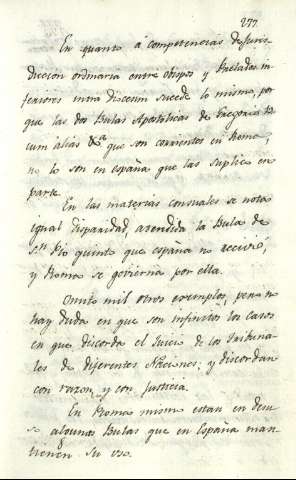 277.
En quanto á competencias de Juris-
diccion ordinaria entre obispos y Prelados in-
feriores intra Diocesim sucede lo mismo, por
que las dos Bulas Apostólicas de Gregorio 15
cum alias &a que son corrientes en Roma,
no lo son en españa que las suplicó en
parte.
En las materias censuales se nota
igual disparidad, atendida la Bula de
Sn Pio quinto que españa no recivió,
y Roma se govierna por ella.
Omito mil otros exemplos, pero no
hay duda en que son infinitos los casos
en que discorda el Juicio de los Tribuna-
les de diferentes Naciones, y discordan
con razon, y con justicia.
En Roma misma estan en desu-
so algunas Bulas que en España man-
tienen su uso.